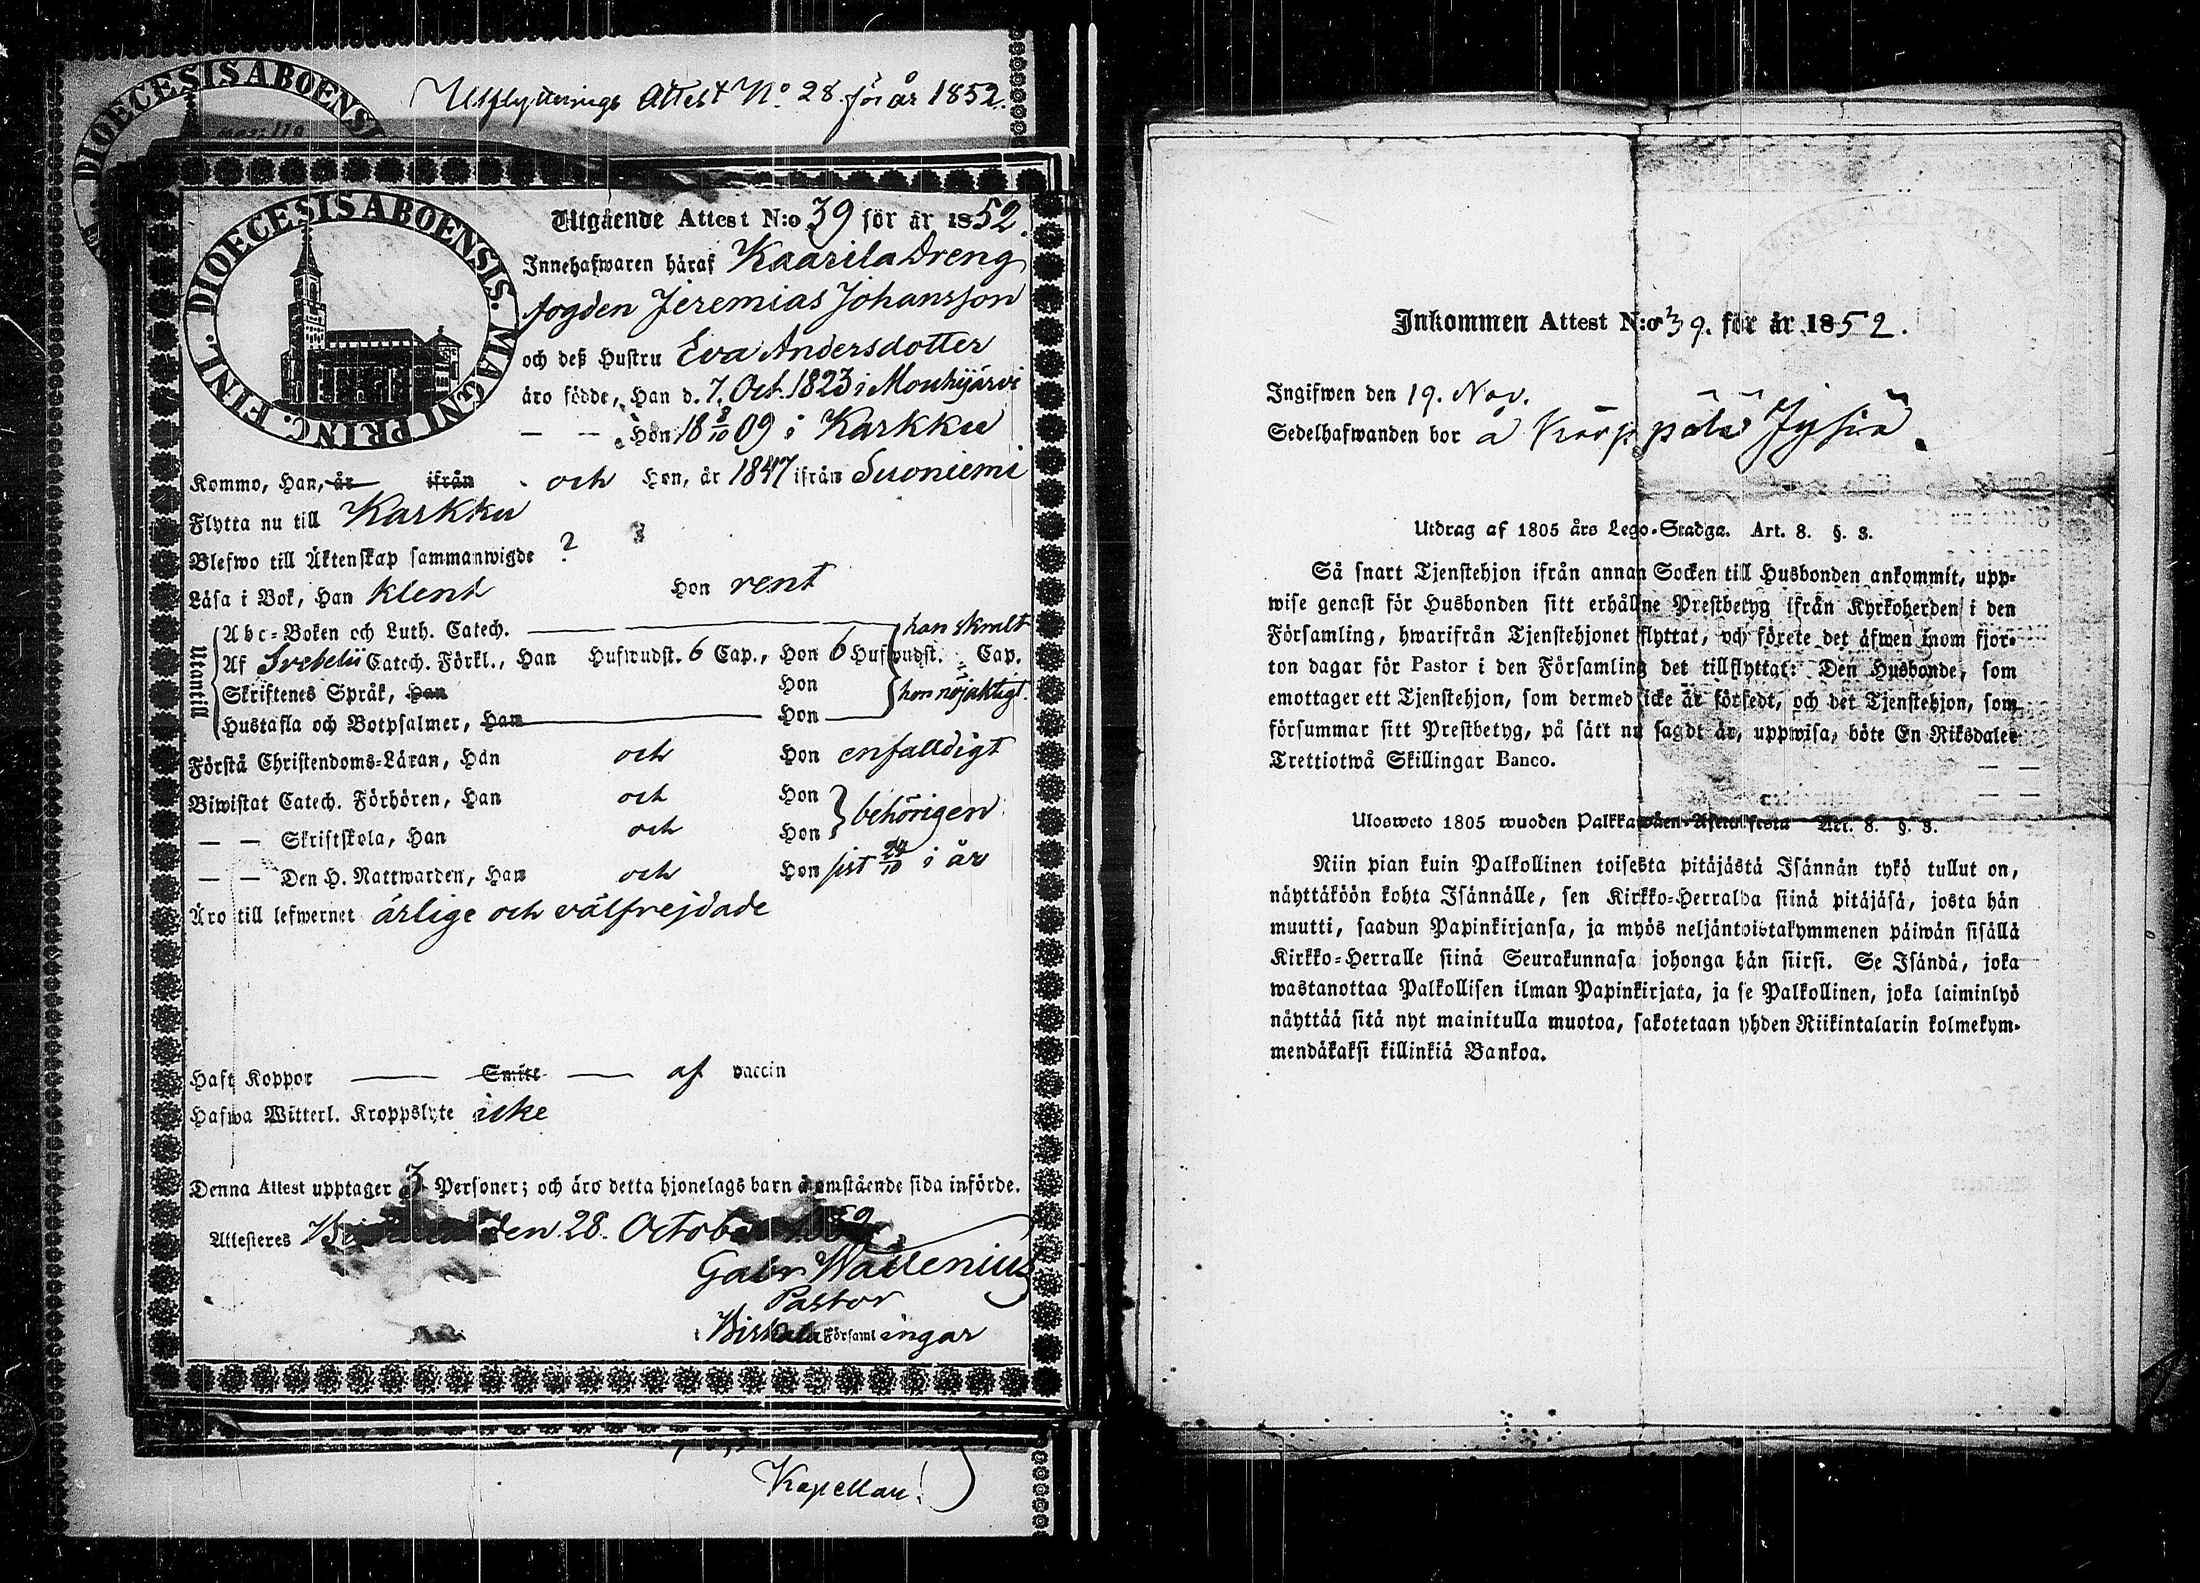 Utflyttnings Attest No. 28 för år 1852.
DIOECESIS ABOENSIS
DIOECESIS ABOENSIS. MAGNI PRINC. FINL.
Utgående Attest N:o 39 för år 1852.
Innehafwaren häraf Kaarila Dreng
fogden Jeremias Johansson
och deß Hustru Eva Andersdotter
äro födde, Han d. 7. Oct. 1823 i Mouhijärvi
— — Hon 18 8/10 09 i Karkku
Kommo, Han, år ifrån och Hon, år 1847 ifrån Suoniemi
Flytta nu till Karkku
Blefwo till Äktenskap sammanwigde ?
Läsa i Bok, Han klent Hon rent
Utantill
Abc-Boken och Luth. Catech. han skralt
Af Svebelii Catech. Förkl., Han Hufwudst. 6 Cap., Hon 6 Hufwudst. Cap.
Skriftenes Språk, Han Hon hon nöjaktigt.
Hustafla och Botpsalmer, Han Hon
Förstå Christendoms-Läran, Han och Hon enfalldigt
Biwistat Catech. Förhören, Han och Hon behörigen
— — Skriftskola, Han och Hon
— — Den H. Nattwarden, Han och Hon sist 24/10 i år
Äro till lefwernet ärlige och välfrejdade
Haft Koppor — Smitt — af vaccin
Hafwa Witterl. Kroppslyte icke
Denna Attest upptager 3 Personer; och äro detta hjonelags barn å omstående sida införde.
Attesteres den 28. October 1852.
Gabr Wallenius
Pastor
i Birkala Församlingar
Kapellan.
Inkommen Attest N:o 39. för år 1852.
Ingifwen den 19. Nov.
Sedelhafwanden bor å
Utdrag af 1805 års Lego-Stadga. Art. 8. §. 3.
Så snart Tjenstehjon ifrån annan Socken till Husbonden ankommit, upp-
wise genast för Husbonden sitt erhållne Prestbetyg ifrån Kyrkoherden i den
Församling, hwarifrån Tjenstehjonet flyttat, och förete det äfwen inom fjor-
ton dagar för Pastor i den Församling det tillflyttat: Den Husbonde, som
emottager ett Tjenstehjon, som dermed icke är försedt, och det Tjenstehjon, som
försummar sitt Prestbetyg, på sätt nu sagdt är, uppwisa, böte En Riksdaler
Trettiotwå Skillingar Banco.
Ulosweto 1805 wuoden Palkkawäen-Asetuksesta Art. 8. §. 3.
Niin pian kuin Palkollinen toisesta pitäjästä Isännän tykö tullut on,
näyttäköön kohta Isännälle, sen Kirkko-Herralda siinä pitäjäsä, josta hän
muutti, saadun Papinkirjansa, ja myös neljäntoistakymmenen päiwän sisällä
Kirkko-Herralle siinä Seurakunnasa johonga hän siirsi. Se Isändä, joka
wastanottaa Palkollisen ilman Papinkirjata, ja se Palkollinen, joka laiminlyö
näyttää sitä nyt mainitulla muotoa, sakotetaan yhden Riikintalarin kolmekym-
mendäkaksi killinkiä Bankoa.